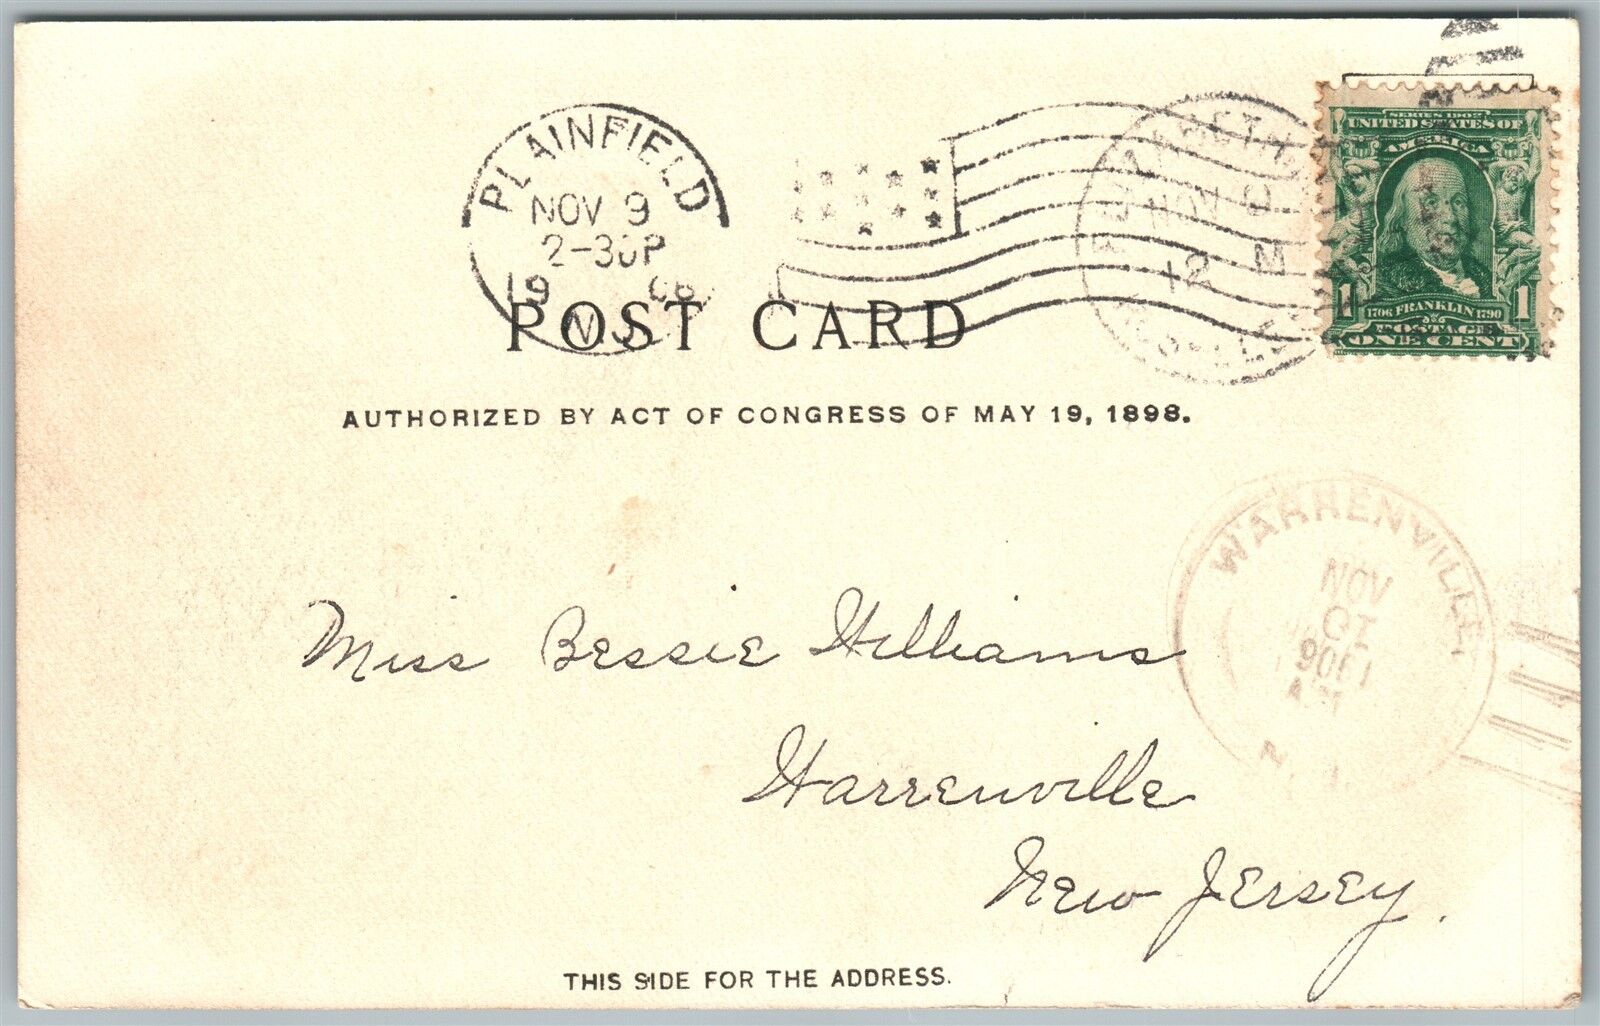 PLAINFIELD
NOV 9
2-30P
19 06
N.J.
NOV 9
12 M
SERIES 1902
UNITED STATES OF
AMERICA
1 1706 FRANKLIN 1790 1
POSTAGE
ONE CENT
POST CARD
AUTHORIZED BY ACT OF CONGRESS OF MAY 19, 1898.
WARRENVILLE,
NOV
10
1906
AM
N.J.
Miss Bessie Williams
Warrenville
New Jersey.
THIS SIDE FOR THE ADDRESS.